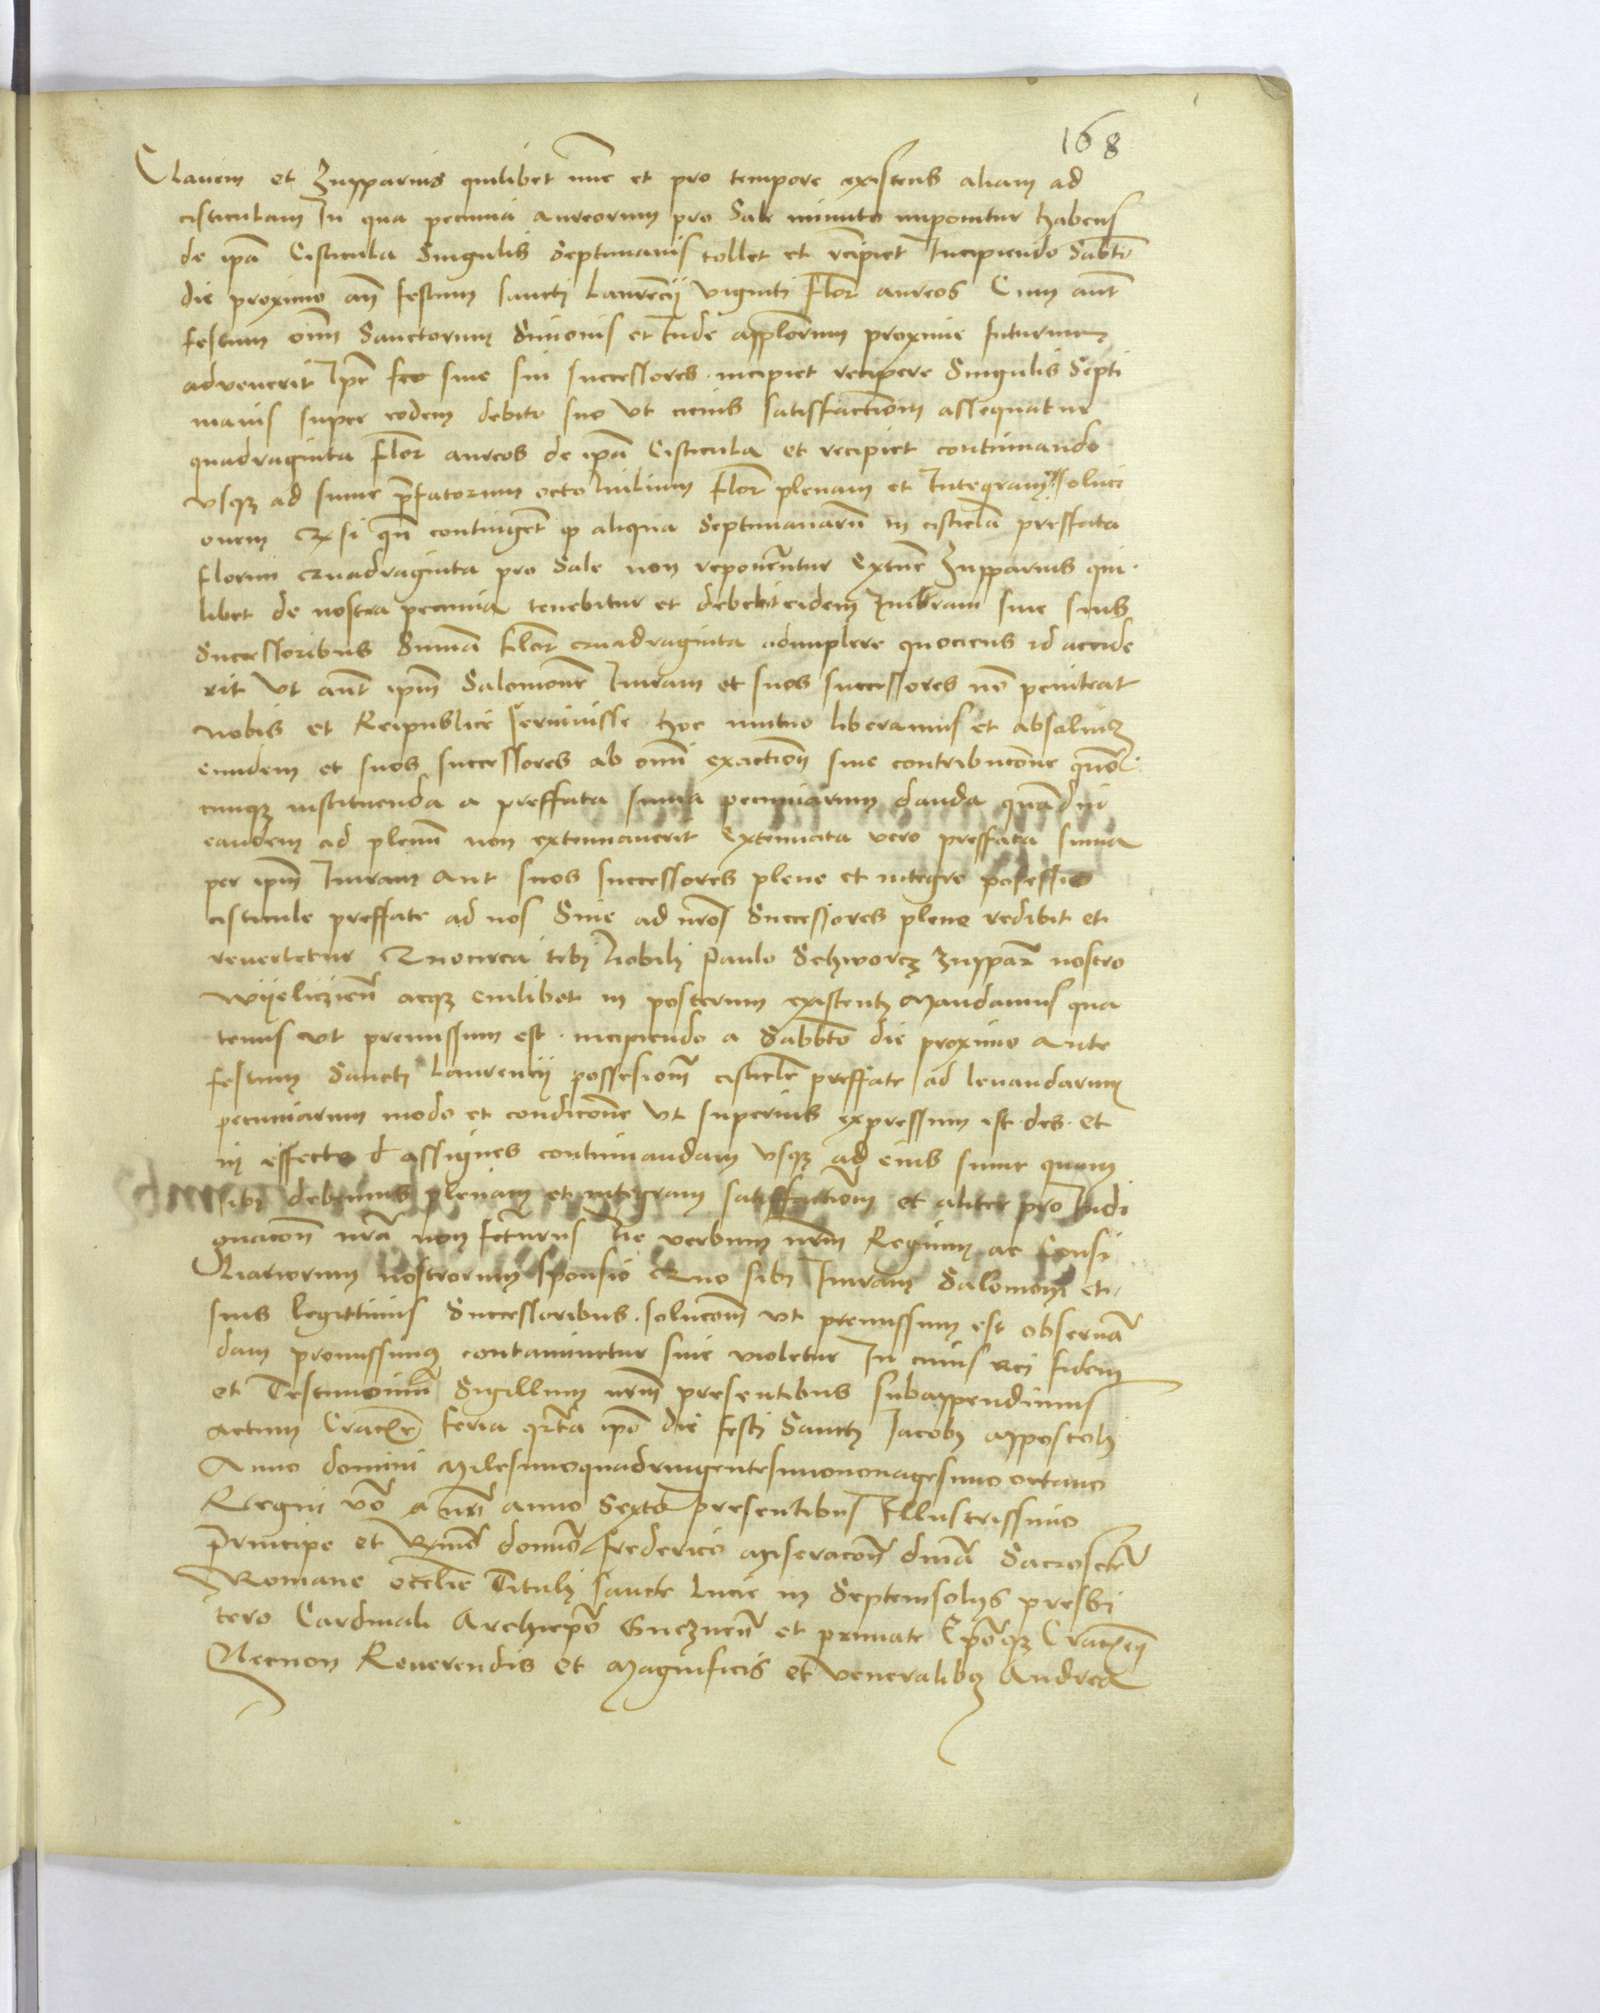 168
Clavem et Zupparius quilibet nunc et pro tempore existens aliam ad
cisticulam In qua pecunia aureorum pro Sale minuto imponitur habens
de ipa Cisticula Singulis Septimanis tollet et recipiet Incipiendo Sabbto
die proximo an festum sancti Laurencii viginti flor aureos Cum aut
festum oim Sanctorum Simonis et Iude applorum proxime futurum
advenerit Ipe seo sive sui successores incipiet recipere Singulis Septi
manis super eodem debito suo ut cicius satisfactionem assequatur
quadraginta flor aureos de ipa Cisticula et recipiet continuando
usqz ad sume prefatorum octo Milium flor plenam et Integram soluci
onem Et si qn continget q aliqua Septimanarum in cisticla preffata
floreni Quadraginta pro Sale non reponerentur Extunc Zupparius qui
libet de nostra pecunia tenebitur et debebit eidem Iuram sive suis
Successoribus Summa flor Quadraginta adimplere quociens id accide
rit Ut aut ipm Salomonem Iuram et suos successores no peniteat
nobis et Reipublice servivisse hoc mutuo liberamus et absolvimus
eundem et suos successores ab omni exactione sive contribucione quo
cunqz instituenda a preffata summa pecuniarum danda quamdiu
eandem ad plenum non extenuaverit Extenuata vero preffata summa
per ipm Iuram Aut suos successores plene et integre possessio
cisticule preffate ad nos Sive ad nros Successores plene redibit et
revertetur Quocirca tibi Nobili Paulo Schworcz Zuppar nostro
Wyelicziens acqz cuilibet in posterum existenti Mandamus qua
tenus ut premissum est incipiendo a Sabbto die proximo Ante
festum Sancti Laurencii possesionem cisticle preffate ad levandarum
pecuniarum modo et condicione ut superius expressum est des et
in effecto assignes continuandam usqz ad eius summe quam
sibi debemus plenam et integram satisfactionem et aliter pro Indi
gnacone nra non facturus Ne verbum nrm Regium ac Consi
liariorum nostrorum sponsio Quo sibi Iuram Salomoni et
suis legittimis Successoribus solucionem ut premissum est observan
dam promissimus contaminetur sive violetur In cuius rei fidem
et Testimonium Sigillum nrm presentibus subappendimus
Actum Cracovie feria qrta ipo die festi Sancti Iacobi Appostoli
Anno domini Milesimoquadringentesimononagesimo octavo
Regni vo nri anno Sexto presentibus Illustrissimo
Principe et Rmo domino Frederico Miseracone dina Sacroscte
Romane ecclie Tituli sancte Lucie in Septemsolys presbi
tero Cardinali Archiepo Gneznen et primate Epoqz Cracovien
Necnon Reverendis et Magnificis et veneralibz Andrea